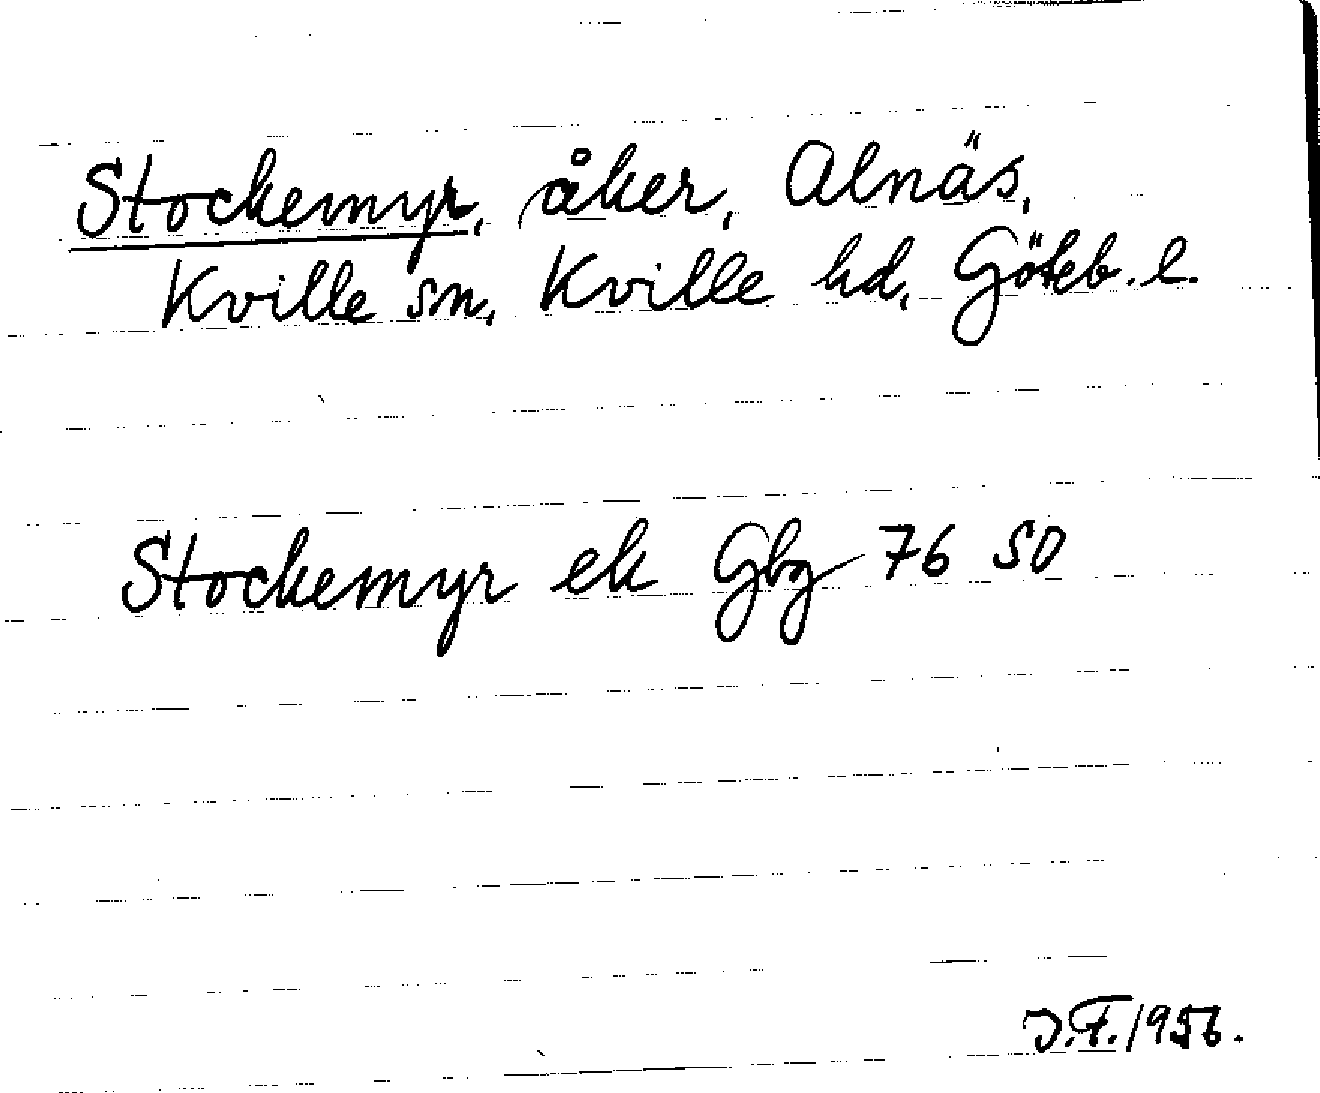 Stockemyr, åker, Alnäs,
Kville sn, Kville hd, Göteb. l.
Stockemyr ek Gbg 76 SO
J.F. 1956.